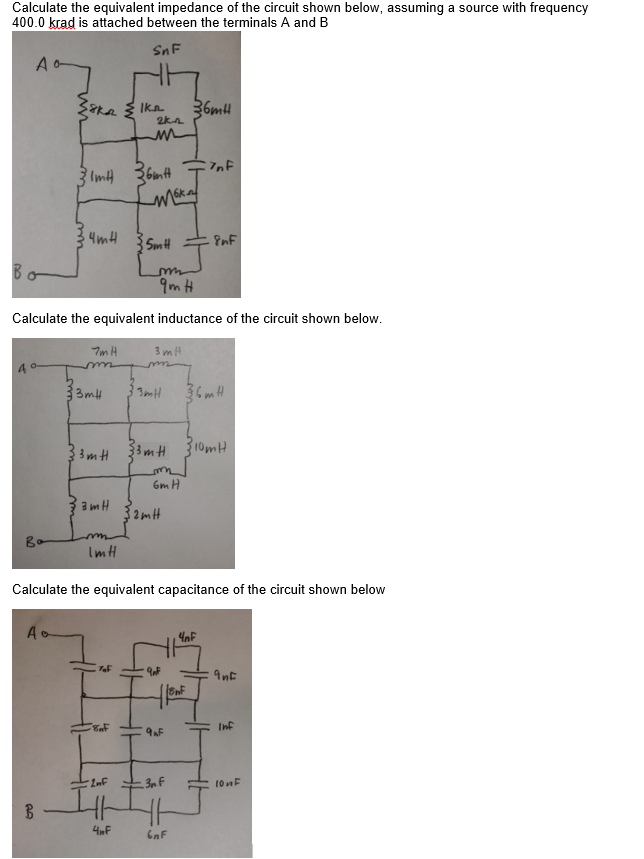 Calculate the equivalent impedance of the circuit shown below, assuming a source with frequency
400.0 krad is attached between the terminals A and B
5nF
A
8kΩ
1kΩ
6mH
2kΩ
7nF
1mH
6mH
6kΩ
4mH
5mH
8nF
B
9mH
Calculate the equivalent inductance of the circuit shown below.
7mH
3mH
A
3mH
3mH
6mH
3mH
3mH
10mH
6mH
3mH
2mH
B
1mH
Calculate the equivalent capacitance of the circuit shown below
A
4nF
7nF
9nF
9nF
8nF
8nF
9nF
1nF
2nF
3nF
10nF
B
4nF
6nF